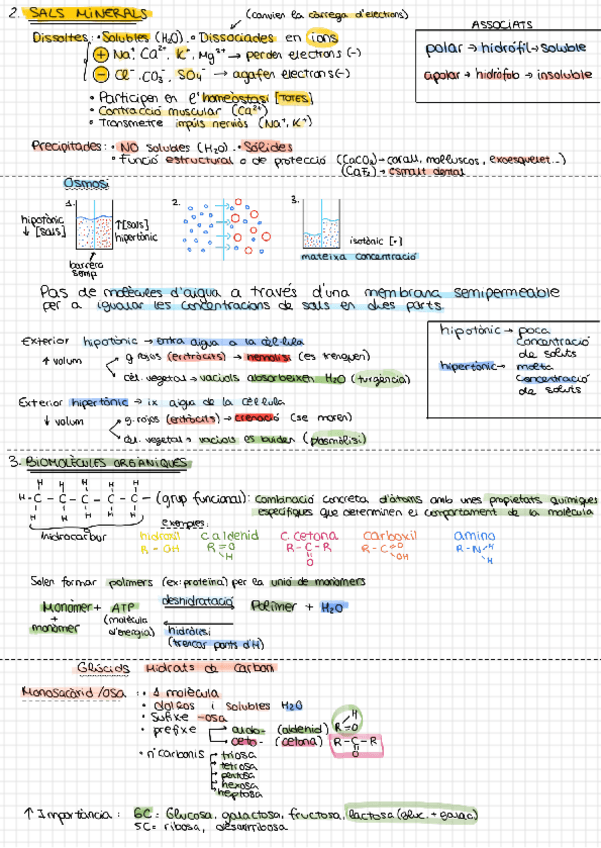 2. SALS MINERALS
(canvien la càrrega d'electrons)
Dissoltes: • Solubles (H₂O) • Dissociades en ions
+ Na⁺, Ca²⁺, K⁺, Mg²⁺ → perden electrons (-)
- Cl⁻, CO₃⁻, SO₄⁻ → agafen electrons (-)
• Participen en l'homeòstasi [TOTES]
• Contracció muscular (Ca²⁺)
• Transmetre impuls nerviós (Na⁺, K⁺)
ASSOCIATS
polar → hidròfil → soluble
apolar → hidròfob → insoluble
Precipitades: • NO solubles (H₂O) • Sòlides
• Funció estructural o de protecció (CaCO₃) → corall, molluscos, exoesquelet...)
(CaF₂) → esmalt dental
Osmosi
1.
hipotònic
↓ [sals]
↑ [sals]
hipertònic
barrera
semp.
2.
3.
isotònic [=]
mateixa concentració
Pas de molècules d'aigua a través d'una membrana semipermeable
per a igualar les concentracions de sals en dues parts.
Exterior hipotònic → entra aigua a la cèl·lula
↑ volum
g. rojos (eritròcits) → hemolisi (es trenquen)
cèl. vegetal → vacuols absorbeixen H₂O (turgència)
Exterior hipertònic → ix aigua de la cèl·lula
↓ volum
g. rojos (eritròcits) → crenació (se moren)
cèl. vegetal → vacuols es buiden (plasmòlisi)
hipotònic → poca
concentració
de soluts
hipertònic → molta
concentració
de soluts
3. BIOMOLÈCULES ORGÀNIQUES
H H H H H
H - C - C - C - C - C - (grup funcional): combinació concreta d'àtoms amb unes propietats químiques
H H H H H
específiques que determinen el comportament de la molècula
hidrocarbur
exemples:
hidroxil
R - OH
c. aldehid
R = O
H
c. cetona
R - C - R
O
carboxil
R - C = O
OH
amino
R - N - H
H
Solen formar polímers (ex: proteïna) per la unió de monòmers
Monòmer + ATP
+
monòmer
(molècula
d'energia)
deshidratació
hidròlisi
(trencar ponts d'H)
Polímer + H₂O
Glúcids Hidrats de Carbon
Monosacàrid /osa : • 1 molècula
• dolços i solubles H₂O
• sufixe -osa
• prefixe
aldo- (aldehid)
R = O
H
ceto- (cetona)
R - C - R
O
• nº carbonis
triosa
tetrosa
pentosa
hexosa
heptosa
↑ Importància: 6C = Glucosa, galactosa, fructosa, lactosa (gluc. + galac)
5C = ribosa, desoxirribosa